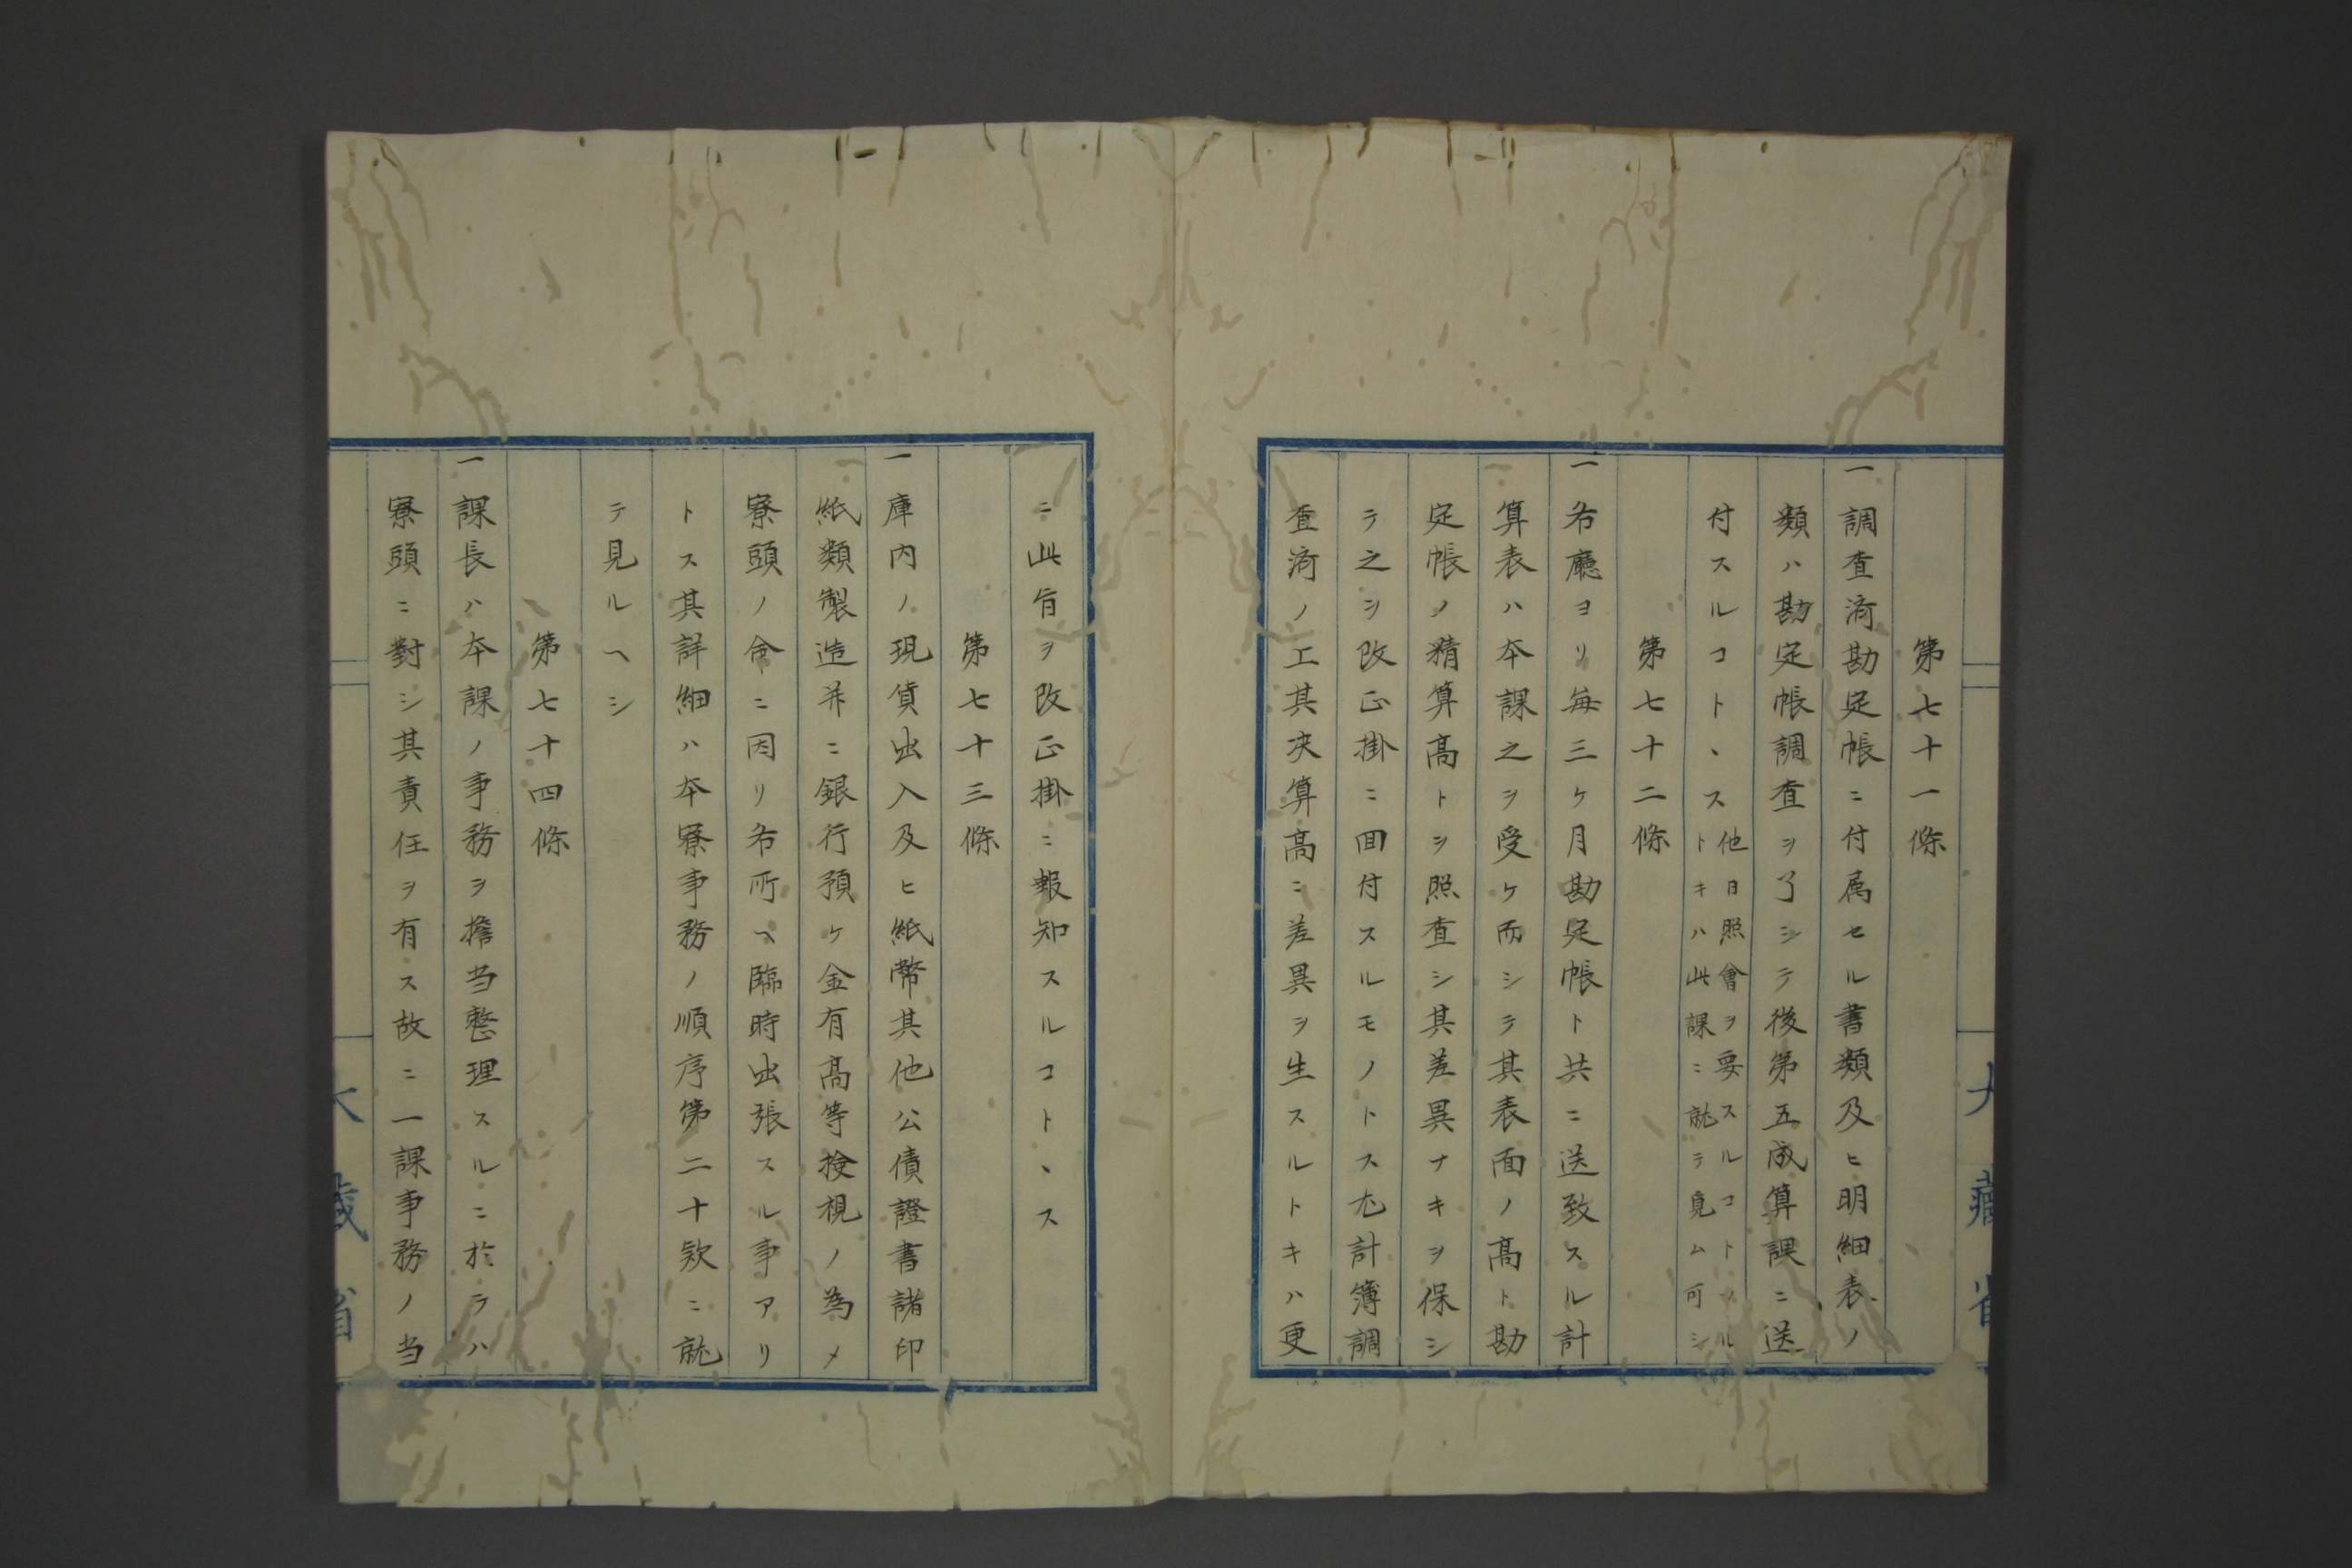 第七十一條
一調査済勘定帳ニ付属セル書類及ヒ明細表ノ
類ハ勘定帳調査ヲ了シテ後第五成算課ニ送
付スルコトヽス他日照會ヲ要スルコトアル
トキハ此課ニ就テ覓ム可シ
第七十二條
一各廳ヨリ毎三ケ月勘定帳ト共ニ送致スル計
算表ハ本課之ヲ受ケ而シテ其表面ノ髙ト勘
定帳ノ精算髙トヲ照査シ其差異ナキヲ保シ
テ之ヲ改正掛ニ回付スルモノトス尤計簿調
査済ノ上其决算髙ニ差異ヲ生スルトキハ更
ニ此旨ヲ改正掛ニ報知スルコトヽス
第七十三條
一庫内ノ現貨出入及ヒ紙幣其他公債證書諸印
紙類製造并ニ銀行預ケ金有髙等撿視ノ為メ
寮頭ノ命ニ因リ各所ヘ臨時出張スル事アリ
トス其詳細ハ本寮事務ノ順序第二十欵ニ就
テ見ルヘシ
第七十四條
一課長ハ本課ノ事務ヲ擔当整理スルニ於テハ
寮頭ニ對シ其責任ヲ有ス故ニ一課事務ノ当
大藏省
大藏省